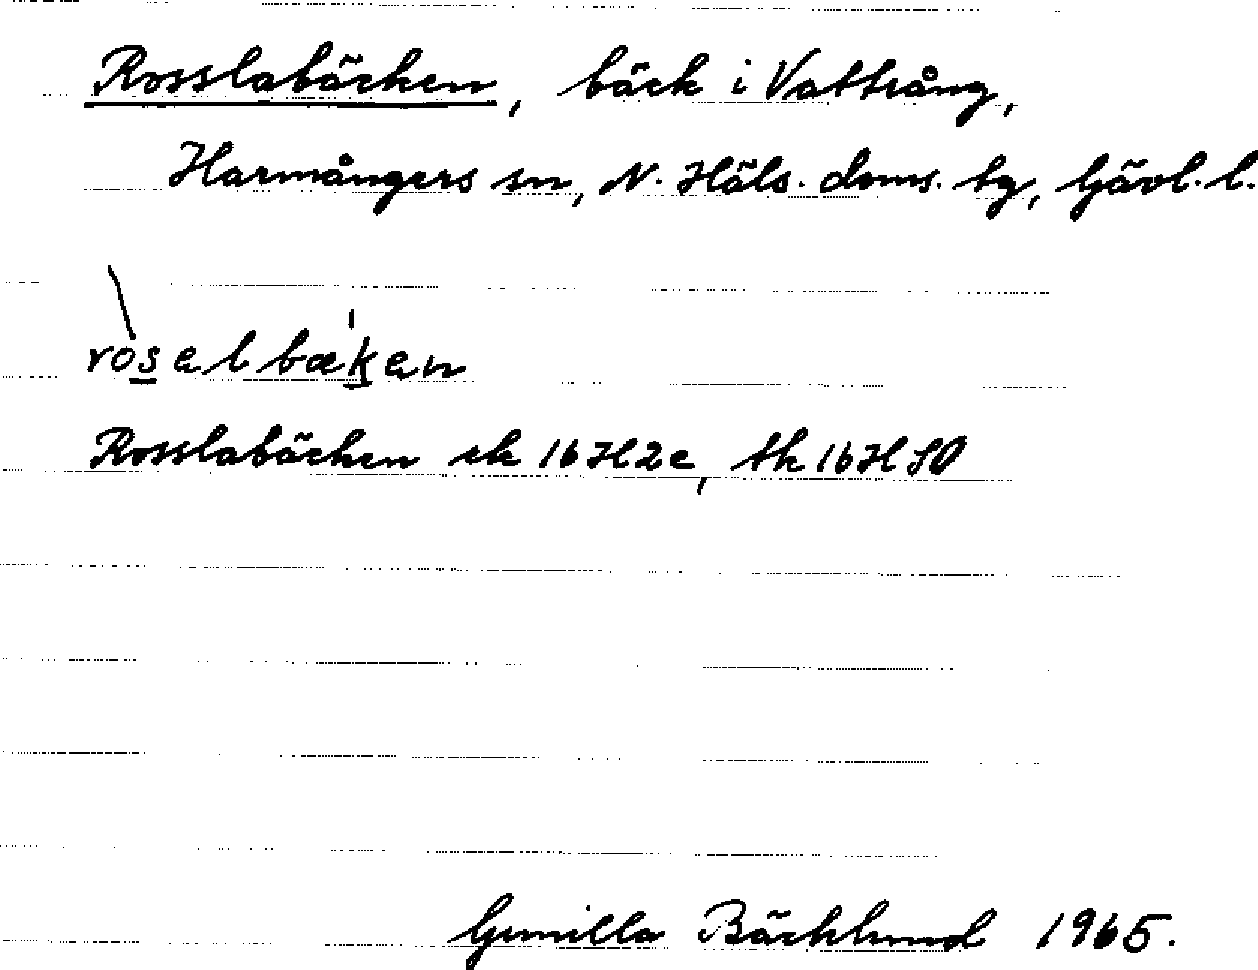 Rosslabäcken, bäck i Vattrång,
Harmångers sn, N. Häls. doms. tg, Gävl. l.
ròs̲elbæ'k̲en
Rosslabäcken ek 16H2e, tk 16H SO
Gunilla Bäcklund 1965.